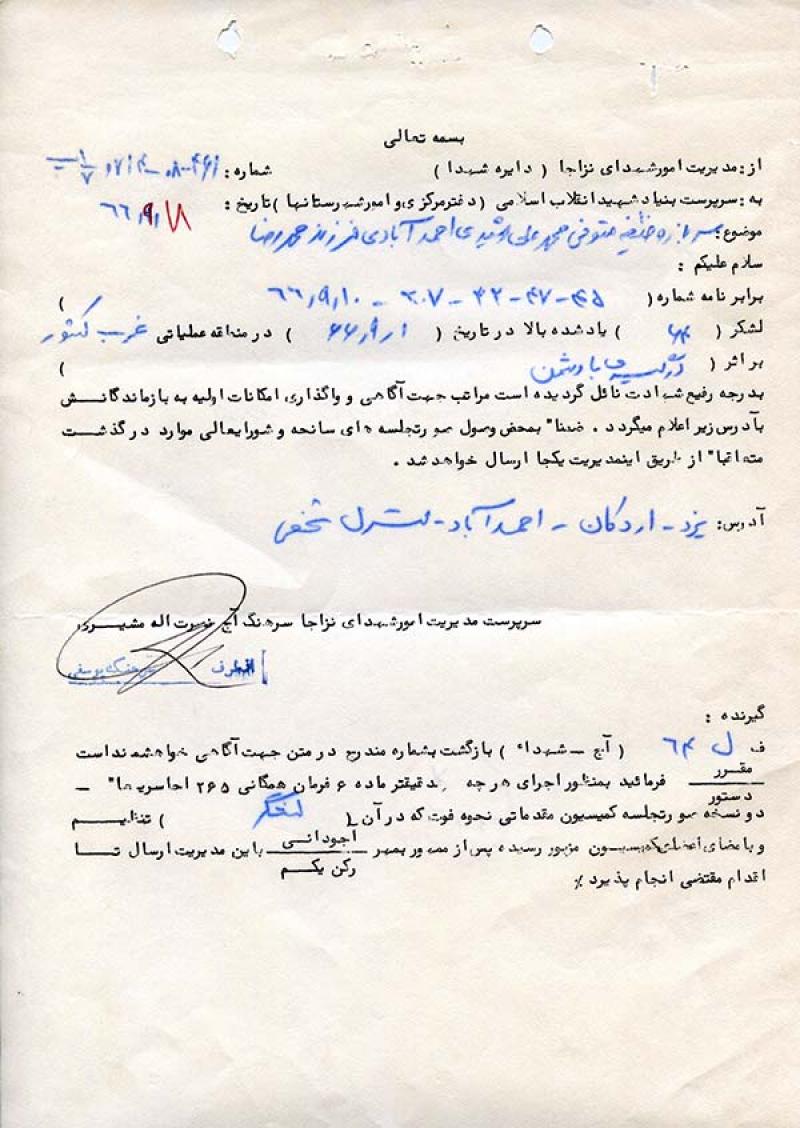 بسمه تعالی
از: مدیریت امور شهدای نزاجا ( دایره شهدا ) شماره :
به: سرپرست بنیاد شهید انقلاب اسلامی (دفتر مرکزی و امور شهرستانها ) تاریخ : ۶۶/۹/۱۸
موضوع: سرباز وظیفه متوفی محمد علی رشیدی احمد آبادی فرزند محمد رضا
سلام علیکم :
برابر نامه شماره ( ۴۵-۴۷-۴۲-۳۰۷ - ۶۶/۹/۱۰ )
لشکر ( ۶۴ ) یاد شده بالا در تاریخ ( ۶۶/۹/۱ ) در منطقه عملیاتی غرب کشور
بر اثر ( درگیری با دشمن )
بدرجه رفیع شهادت نائل گردیده است مراتب جهت آگاهی و واگذاری امکانات اولیه به بازماندگانش
بآدرس زیر اعلام میگردد . ضمنا" بمحض وصول صورتجلسه های سانحه و شورایعالی موارد درگذشت
متعاقبا" از طریق اینمدیریت یکجا ارسال خواهد شد .
آدرس: یزد - اردکان - احمد آباد - منزل شخصی
سرپرست مدیریت امور شهدای نزاجا سرهنگ آج نصرت اله
از طرف سرهنگ یوسفی
گیرنده :
ف ل ۶۴ ( آج - شهداء ) بازگشت بشماره مندرج در متن جهت آگاهی خواهشمند است
مقرر
دستور
فرمائید بمنظور اجرای هر چه دقیقتر ماده ۶ فرمان همگانی ۲۶۵ اجا سریعا" -
دو نسخه صورتجلسه کمیسیون مقدماتی نحوه فوت که در آن ( لشگر ) تنظیم
و بامضای اعضای کمیسیون مزبور رسیده پس از ممهور بمهر آجودانی
رکن یکم
باین مدیریت ارسال تا
اقدام مقتضی انجام پذیرد ٪